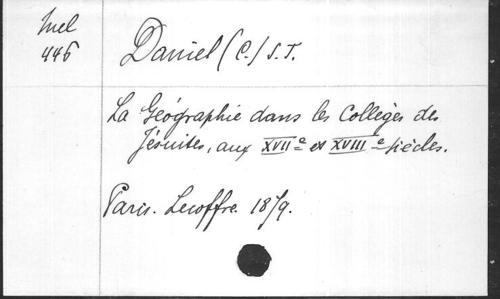 Mel
446
Daniel (C.) S. J.
La Géographie dans les Collèges des
Jésuites, aux XVIIe et XVIIIe siècles.
Paris. Lecoffre. 1879.